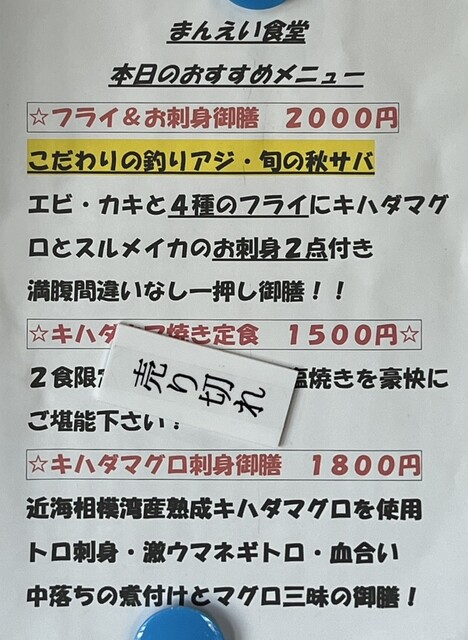 まんえい食堂
本日のおすすめメニュー
☆フライ＆お刺身御膳　２０００円
こだわりの釣りアジ・旬の秋サバ
エビ・カキと４種のフライにキハダマグ
ロとスルメイカのお刺身２点付き
満腹間違いなし一押し御膳！！
☆キハダ 焼き定食　１５００円☆
２食限 塩焼きを豪快に
売り切れ
ご堪能下さい！
☆キハダマグロ刺身御膳　１８００円
近海相模湾産熟成キハダマグロを使用
トロ刺身・激ウマネギトロ・血合い
中落ちの煮付けとマグロ三味の御膳！